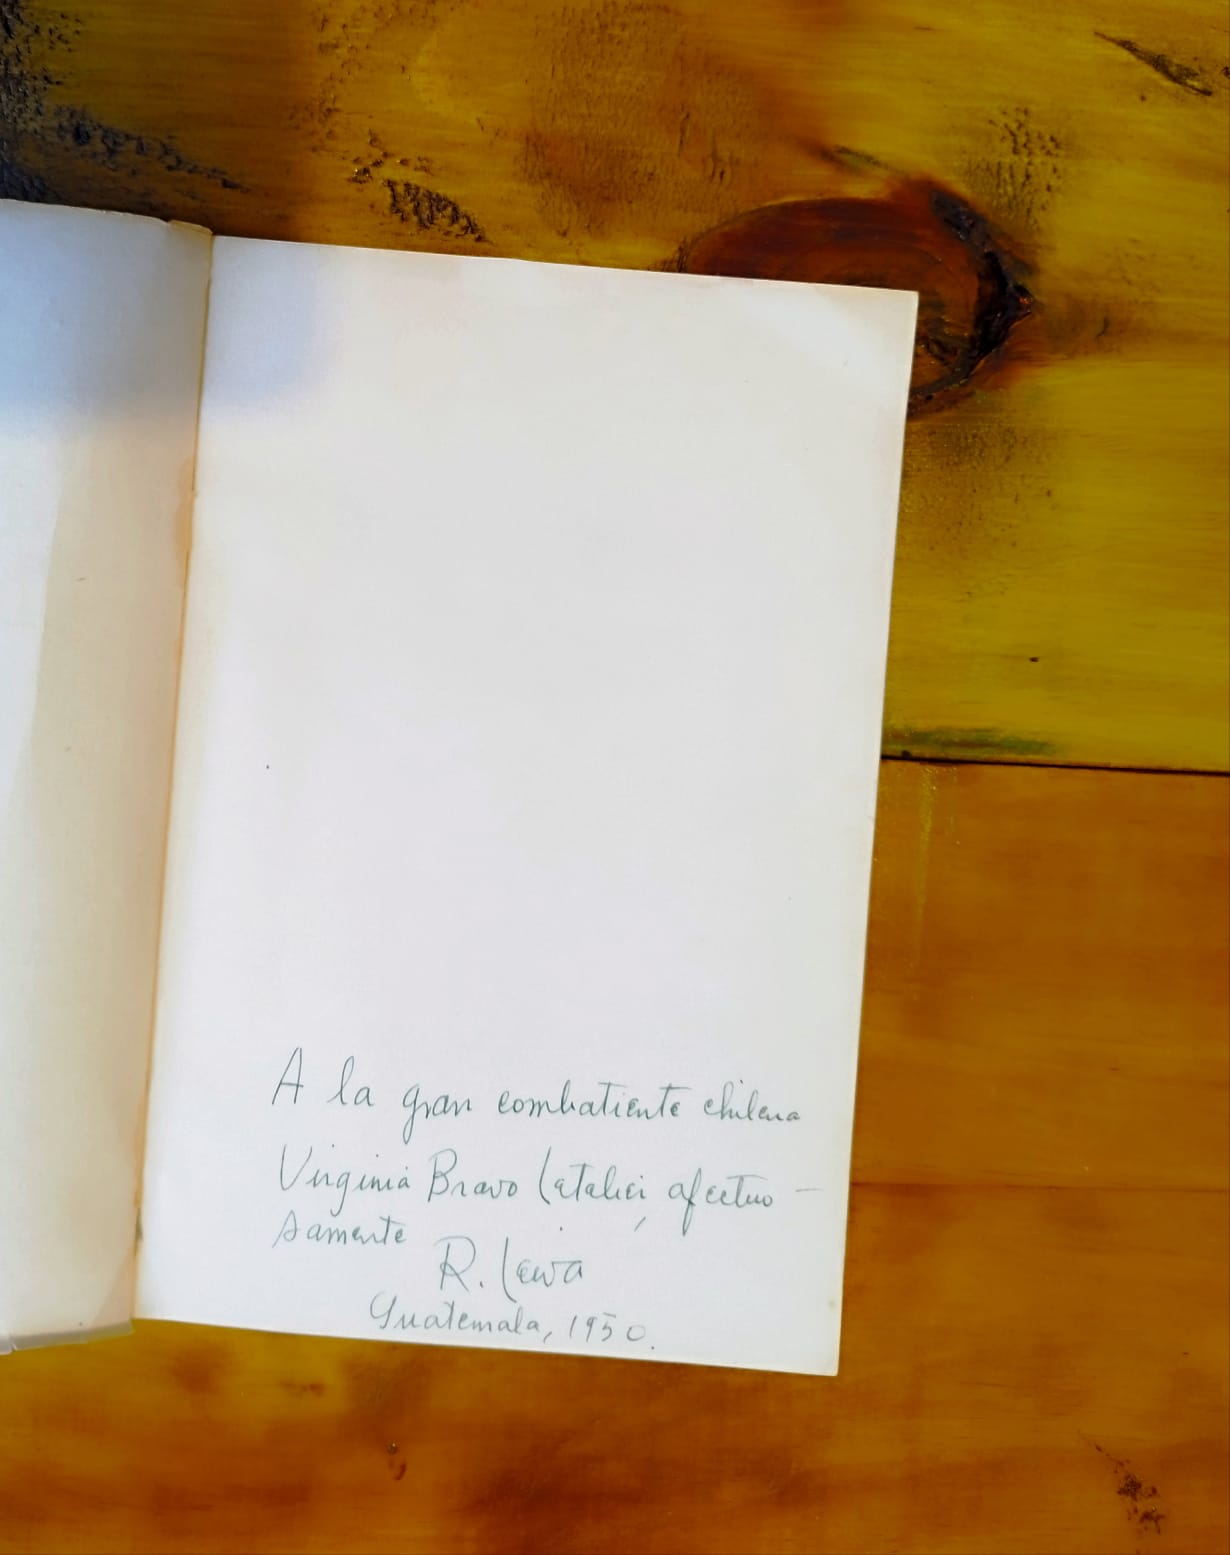 A la gran combatiente chilena
Virginia Bravo Letelier, afectuo-
samente
R. Leiva
Guatemala, 1950.